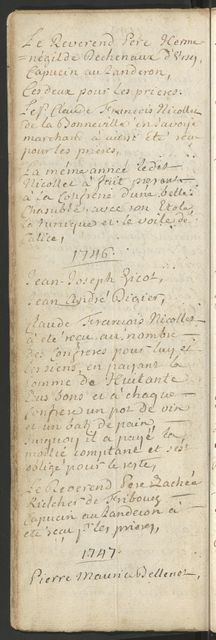 Le Reverend Pere Herme
=négilde Dechenaux d'
Capucin au Landeron,
Ces deux pour les prieres.
Le Sr. Claude François Nicollet
de la Bonneville en Savoye
marchant à été reçu
pour les prieres,
La même année ledit
Nicollet à fait present
a la Confrerie d'une belle
Chasuble avec son Etole
la tunique et le voile de
Calice,
1746.
Jean Joseph Gicot,
Jean André Digier,
Claude François Nicollet
à été reçu au nombre
des Confreres pour luy et
les siens, en payant la
somme de Huitante
Ecus bons et à chaque
Confrere un pot de vin
et un batz de pain,
surquoy il a payé la
moitié comptant et s'est
obligé pour le reste,
Le Reverend Pere Zachée
de Fribourg
Capucin au Landeron à
été reçu pr. les prieres,
1747.
Pierre Maurice Bellenot,